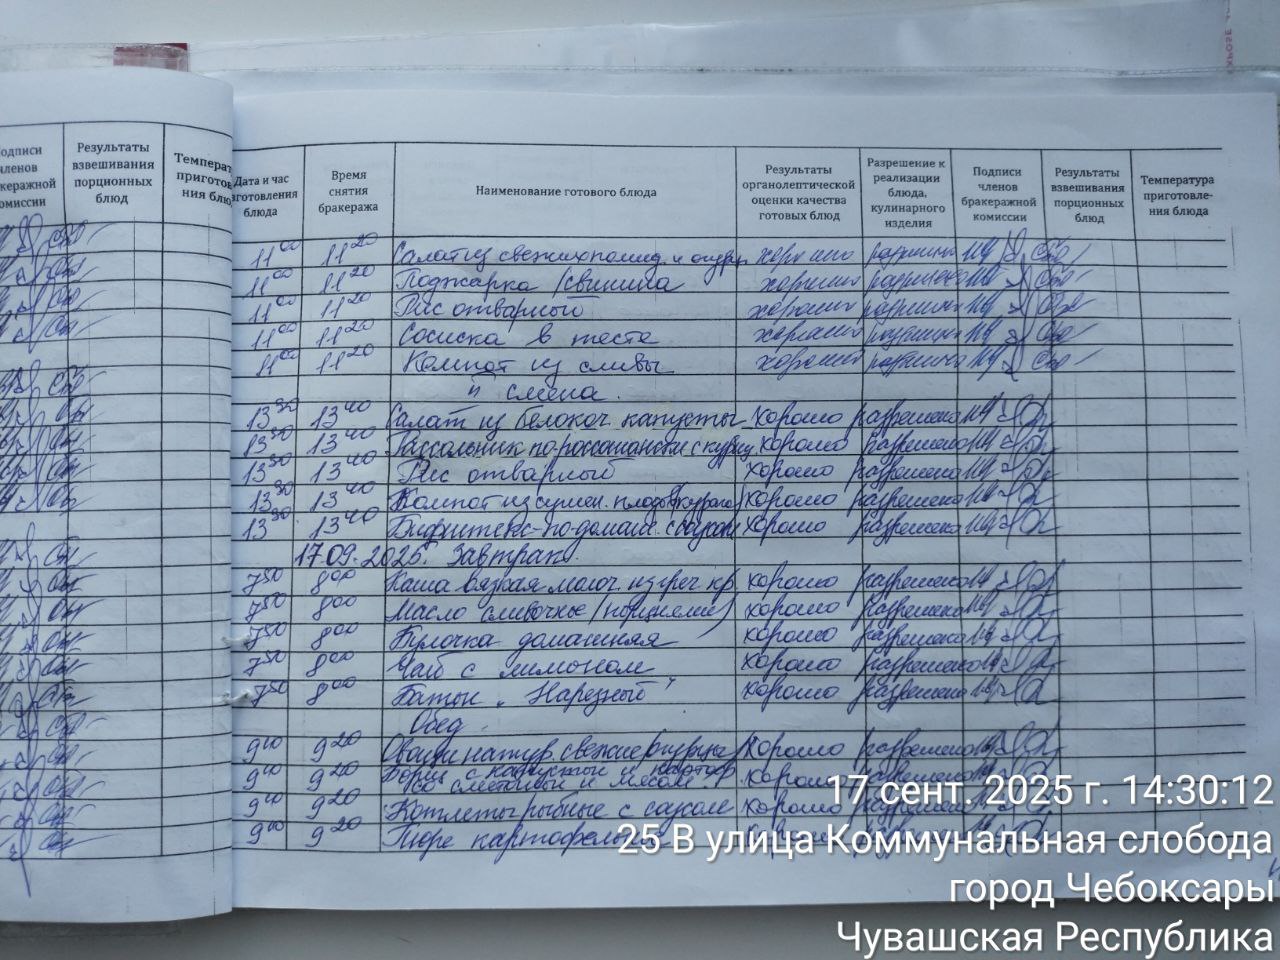 одписи членов акеражной омиссии
Результаты взвешивания порционных блюд
Температ приготов ния блю
Дата и час зготовления блюда
Время снятия бракеража
Наименование готового блюда
Результаты органолептической оценки качества готовых блюд
Разрешение к реализации блюда, кулинарного изделия
Подписи членов бракеражной комиссии
Результаты взвешивания порционных блюд
Температура приготовле- ния блюда
11 00 11 20 Салат из свежих помид. и огурц хорошо разрешено
11 00 11 20 Поджарка /свинина хорошо разрешено
11 00 11 20 Рис отварный хорошо разрешено
11 00 11 20 Сосиска в тесте хорошо разрешено
11 00 11 20 Компот из сливы хорошо разрешено
II смена.
13 30 13 40 Салат из белокоч. капусты хорошо разрешено
13 30 13 40 Рассольник по-россошански с куриц. хорошо разрешено
13 30 13 40 Рис отварный хорошо разрешено
13 30 13 40 Компот из сушен. плодов (курага) хорошо разрешено
13 30 13 40 Бифштекс по-домаш. с соусом хорошо разрешено
17.09.2025. Завтрак.
7 50 8 00 Каша вязкая молоч. из греч. кр. хорошо разрешено
7 50 8 00 Масло сливочное (порциями) хорошо разрешено
7 50 8 00 Булочка домашняя хорошо разрешено
7 50 8 00 Чай с лимоном хорошо разрешено
7 50 8 00 Батон "Нарезный" хорошо разрешено
Обед.
9 00 9 20 Овощи натур. свежие (огурцы) хорошо разрешено
9 00 9 20 Борщ с капустой и картоф. со сметаной и мясом. хорошо разрешено
9 00 9 20 Котлеты рыбные с соусом хорошо
9 00 9 20 Пюре картофельное
17 сент. 2025 г. 14:30:12
25 В улица Коммунальная слобода
город Чебоксары
Чувашская Республика